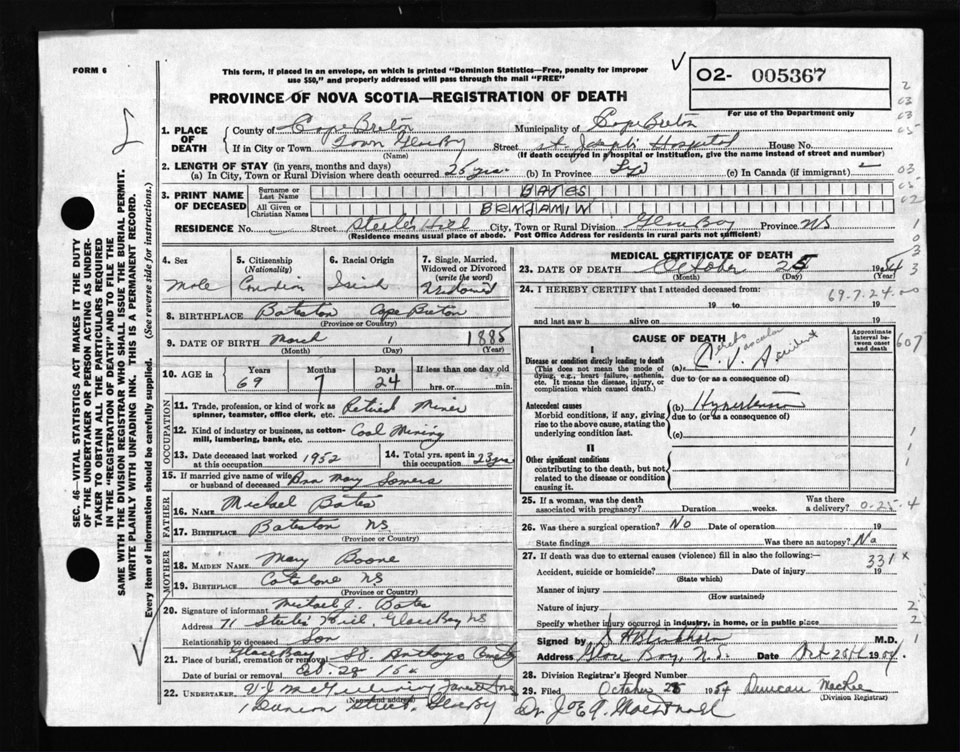 FORM 6
This form, if placed in an envelope, on which is printed "Dominion Statistics—Free, penalty for improper
use $50," and properly addressed will pass through the mail "FREE"
02- 005367
For use of the Department only
PROVINCE OF NOVA SCOTIA—REGISTRATION OF DEATH
1. PLACE OF DEATH County of Cape Breton Municipality of Cape Breton
If in City or Town Town Glace Bay Street St. Joseph's Hospital House No.
(Name) (If death occurred in a hospital or institution, give the name instead of street and number)
2. LENGTH OF STAY (in years, months and days)
(a) In City, Town or Rural Division where death occurred 25 yrs. (b) In Province Life (c) In Canada (if immigrant) —
3. PRINT NAME OF DECEASED Surname or Last Name BATES
All Given or Christian Names BENJAMIN
RESIDENCE No. Street Steeles Hill City, Town or Rural Division Glace Bay Province NS
(Residence means usual place of abode. Post Office Address for residents in rural parts not sufficient)
4. Sex Male
5. Citizenship (Nationality) Canadian
6. Racial Origin Irish
7. Single, Married, Widowed or Divorced (write the word) Widowed
8. BIRTHPLACE Bateston Cape Breton
(Province or Country)
9. DATE OF BIRTH March 1 1885
(Month) (Day) (Year)
10. AGE in Years 69 Months 7 Days 24 If less than one day old hrs. or min.
OCCUPATION
11. Trade, profession, or kind of work as spinner, teamster, office clerk, etc. Retired Miner
12. Kind of industry or business, as cotton-mill, lumbering, bank, etc. Coal Mining
13. Date deceased last worked at this occupation 1952
14. Total yrs. spent in this occupation 23 yrs
15. If married give name of wife or husband of deceased Mary Somers
FATHER
16. NAME Michael Bates
17. BIRTHPLACE Bateston NS
(Province or Country)
MOTHER
18. MAIDEN NAME Mary Boone
19. BIRTHPLACE Catalone NS
(Province or Country)
20. Signature of informant Michael J. Bates
Address 71 Steeles Hill, Glace Bay NS
Relationship to deceased Son
21. Place of burial, cremation or removal Glace Bay St Anthonys Cemetery
Date of burial or removal Oct 28
22. UNDERTAKER
(Name and address)
Street, Glace Bay
MEDICAL CERTIFICATE OF DEATH
23. DATE OF DEATH October 25 1954
(Month) (Day) (Year)
24. I HEREBY CERTIFY that I attended deceased from:
19 to 19
and last saw h alive on 19
69.7.24.00
CAUSE OF DEATH
Approximate interval between onset and death
I
Disease or condition directly leading to death
(This does not mean the mode of dying, e.g., heart failure, asthenia, etc. It means the disease, injury, or complication which caused death.)
(a) Cerebro Vascular Accident
due to (or as a consequence of)
Antecedent causes
Morbid conditions, if any, giving rise to the above cause, stating the underlying condition last.
(b) Hypertension
due to (or as a consequence of)
(c)
II
Other significant conditions
contributing to the death, but not related to the disease or condition causing it.
25. If a woman, was the death associated with pregnancy? Duration weeks. Was there a delivery?
0-25-4
26. Was there a surgical operation? No Date of operation 19
State findings Was there an autopsy? No
27. If death was due to external causes (violence) fill in also the following:
331 x
Accident, suicide or homicide? Date of injury 19
(State which)
Manner of injury
(How sustained)
Nature of injury
Specify whether injury occurred in industry, in home, or in public place
Signed by M.D.
Address Glace Bay, N.S. Date Oct 28th 1954.
28. Division Registrar's Record Number
29. Filed October 28 1954 Duncan MacRae
(Division Registrar)
SEC. 46—VITAL STATISTICS ACT MAKES IT THE DUTY
OF THE UNDERTAKER OR PERSON ACTING AS UNDER-
TAKER TO OBTAIN ALL THE PARTICULARS REQUIRED
IN THE "REGISTRATION OF DEATH" AND TO FILE THE
SAME WITH THE DIVISION REGISTRAR WHO SHALL ISSUE THE BURIAL PERMIT.
WRITE PLAINLY WITH UNFADING INK. THIS IS A PERMANENT RECORD.
Every item of information should be carefully supplied. (See reverse side for instructions.)